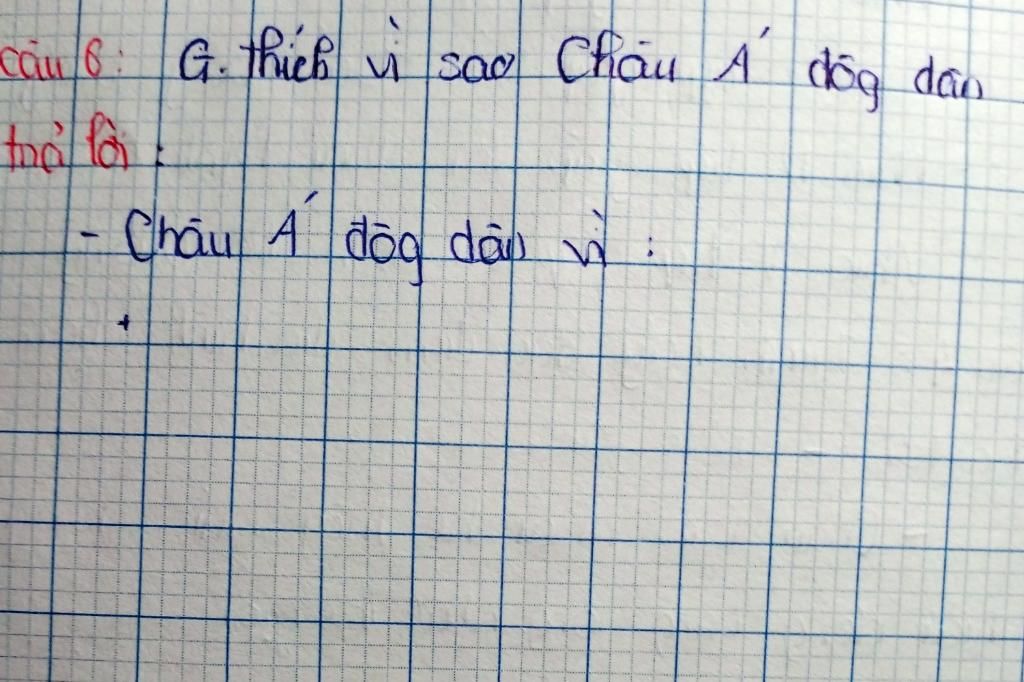 Câu 6: G. thích vì sao Châu Á đōg dân
trả lời :
- Châu Á đōg dân vì :
+